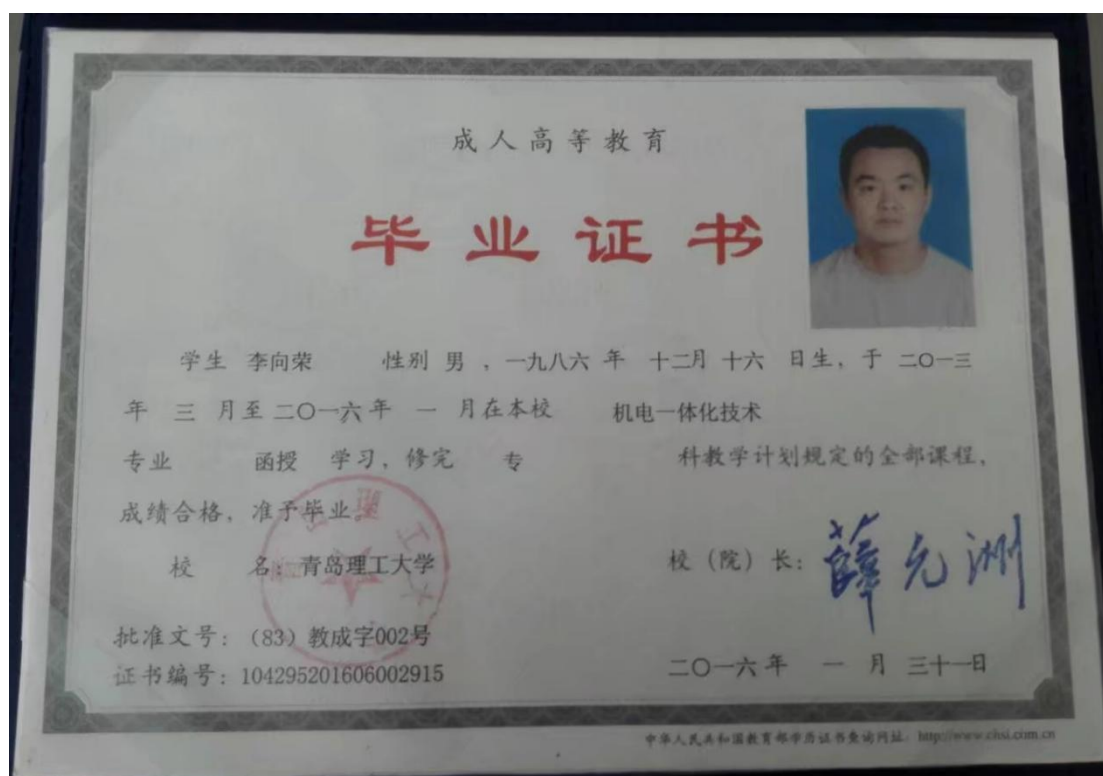 成人高等教育
毕业证书
学生 李向荣 性别 男 ，一九八六 年 十二月 十六 日生，于 二〇一三
年 三 月至 二〇一六年 一 月在本校 机电一体化技术
专业 函授 学习，修完 专 科教学计划规定的全部课程，
成绩合格，准予毕业。
校 名：青岛理工大学 校（院）长：薛允洲
批准文号：（83）教成字002号
证书编号：104295201606002915 二〇一六年 一 月 三十一日
中华人民共和国教育部学历证书查询网址：http://www.chsi.com.cn